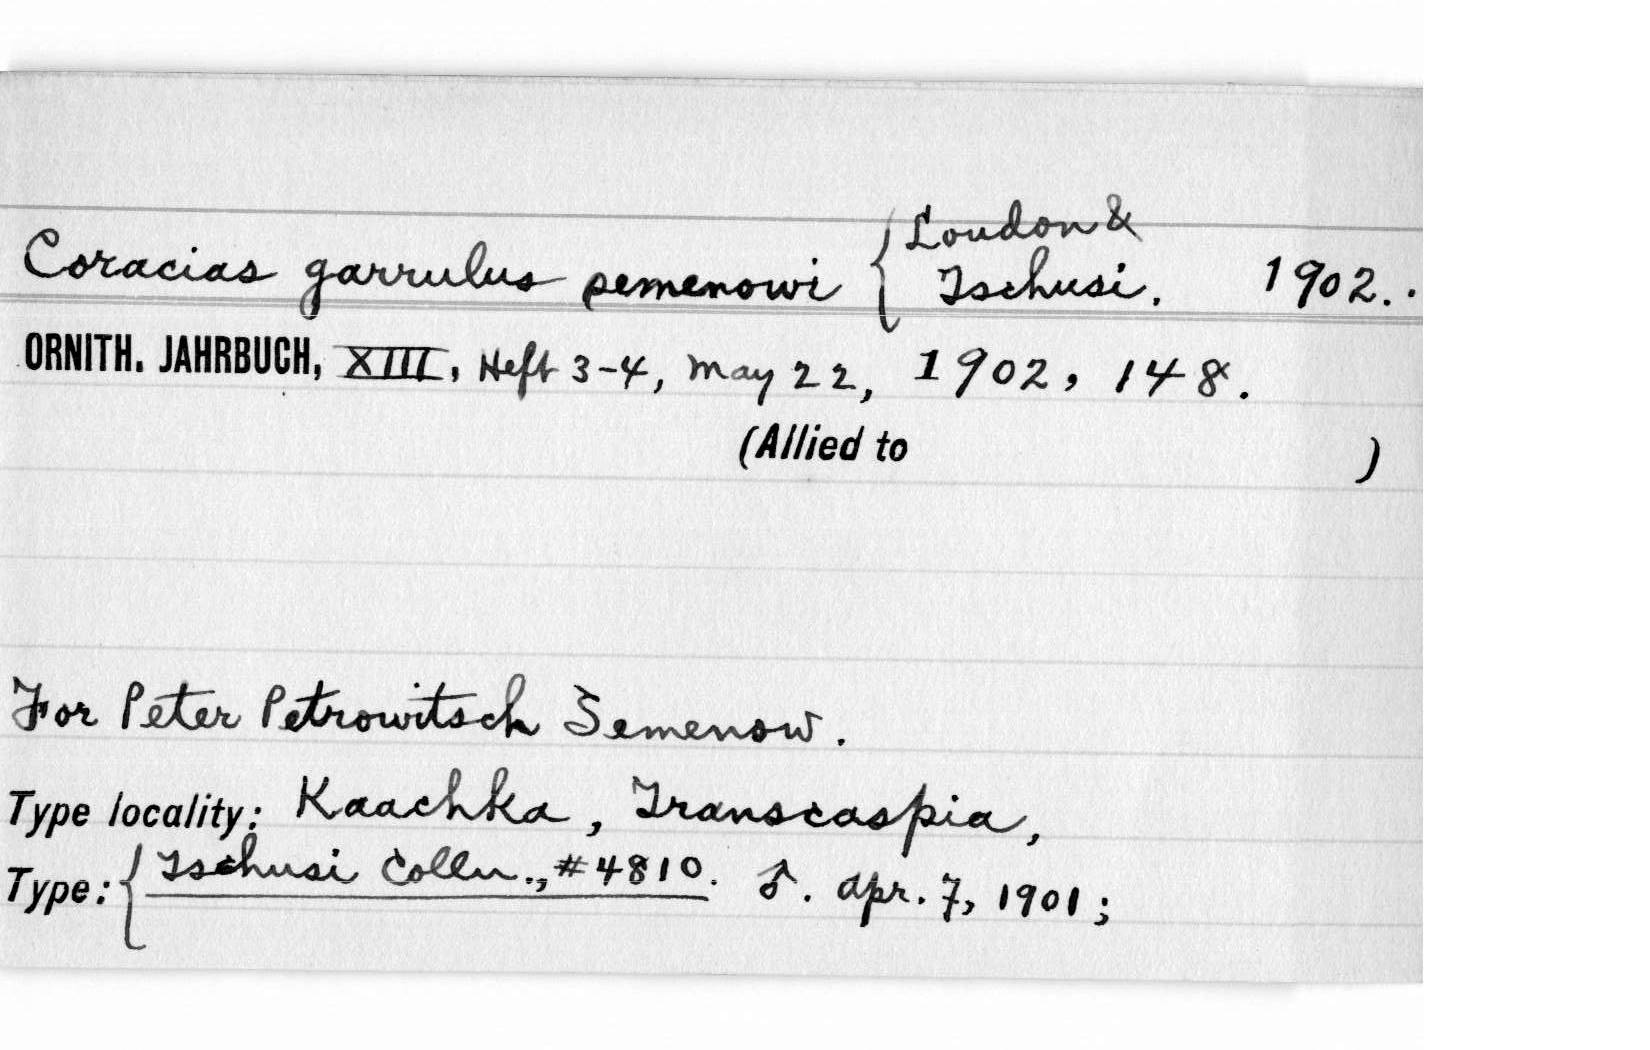 Coracias garrulus semenowi { Loudon &
Tschusi. 1902..
ORNITH. JAHRBUCH, XIII, Heft 3-4, May 22, 1902, 148.
(Allied to )
For Peter Petrowitsch Semenow.
Type locality: Kaachka, Transcaspia,
Type: { Tschusi Colln., #4810. ♂. Apr. 7, 1901;